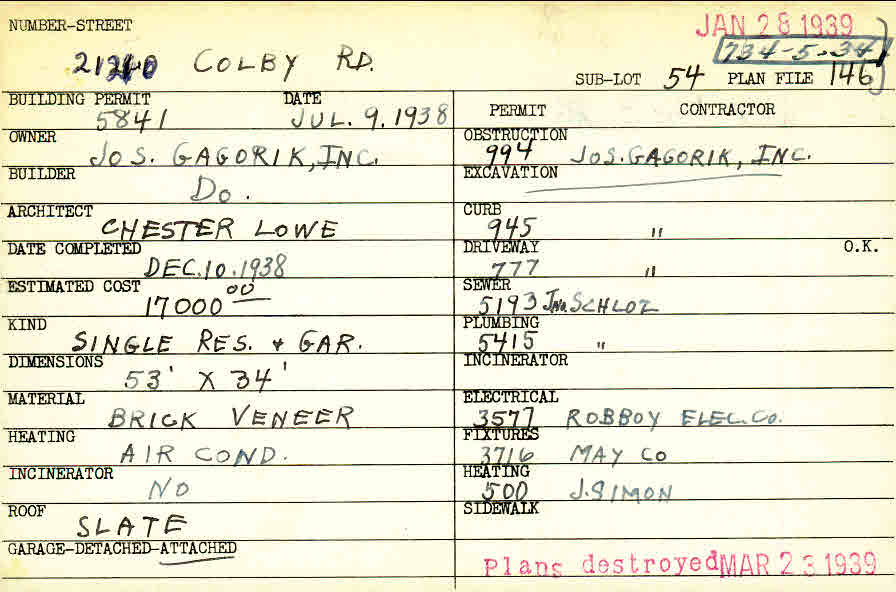 NUMBER-STREET
JAN 28 1939
734-5-34
COLBY RD.
SUB-LOT 54 PLAN FILE 146
BUILDING PERMIT DATE
5841 JUL. 9. 1938
OWNER
JOS. GAGORIK, INC.
BUILDER
DO.
ARCHITECT
CHESTER LOWE
DATE COMPLETED
DEC. 10. 1938
ESTIMATED COST
17000 00
KIND
SINGLE RES. + GAR.
DIMENSIONS
53' X 34'
MATERIAL
BRICK VENEER
HEATING
AIR COND.
INCINERATOR
NO
ROOF
SLATE
GARAGE-DETACHED-ATTACHED
PERMIT CONTRACTOR
OBSTRUCTION
994 JOS. GAGORIK, INC.
EXCAVATION
CURB
945 "
DRIVEWAY O.K.
777 "
SEWER
5193 JNO. SCHLOZ
PLUMBING
5415 "
INCINERATOR
ELECTRICAL
3577 ROBBOY ELEC. CO.
FIXTURES
3716 MAY CO
HEATING
500 J. SIMON
SIDEWALK
Plans destroyed MAR 23 1939